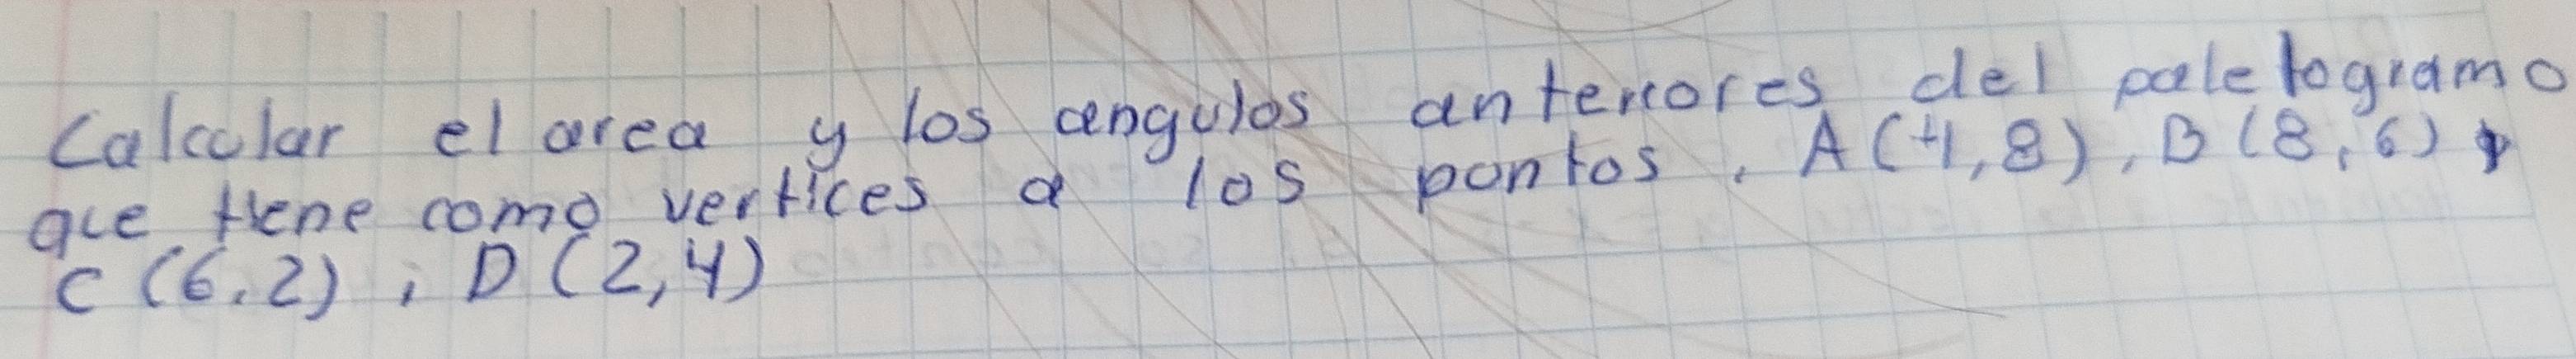 Calcular el area y los angulos anteriores del paletogramo
que tiene como vertices a los pontos, A (4,8), B (8,6)
C (6,2), D (2,4)